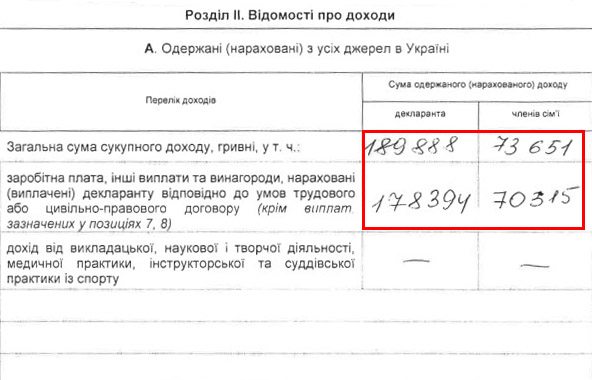 Розділ II. Відомості про доходи
А. Одержані (нараховані) з усіх джерел в Україні
Перелік доходів
Сума одержаного (нарахованого) доходу
декларанта
членів сім'ї
Загальна сума сукупного доходу, гривні, у т. ч.:
189 888
73 651
заробітна плата, інші виплати та винагороди, нараховані
(виплачені) декларанту відповідно до умов трудового
або цивільно-правового договору (крім виплат,
зазначених у позиціях 7, 8)
178394
70315
дохід від викладацької, наукової і творчої діяльності,
медичної практики, інструкторської та суддівської
практики із спорту
—
—